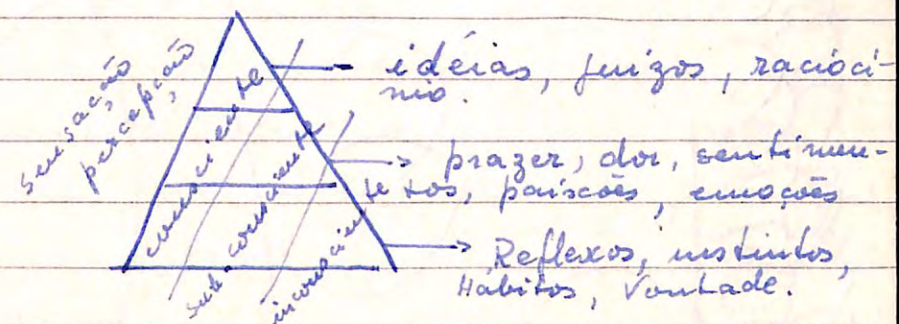 sensação
percepção
consciente
sub consciente
inconsciente
idéias, juizos, racioci-
nio.
prazer, dor, sentimen-
tos, paixões, emoções
Reflexos, instintos,
Hábitos, Vontade.